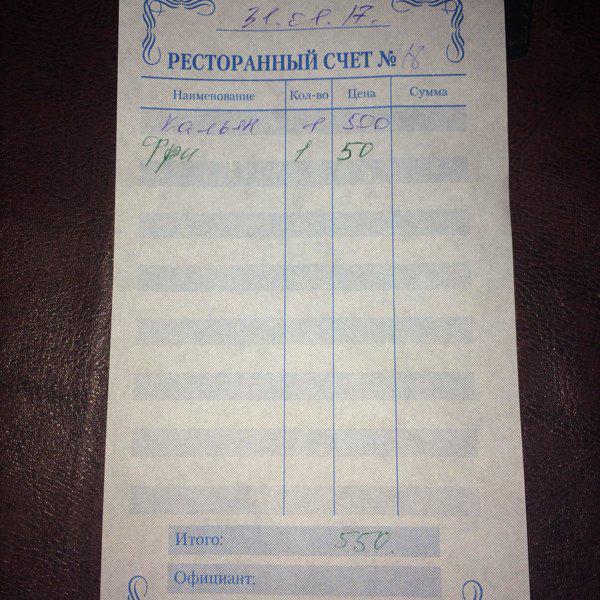 31.01.17.
РЕСТОРАННЫЙ СЧЕТ № 18
Наименование Кол-во Цена Сумма
Кальян 1 500
Фри 1 50
Итого: 550
Официант: